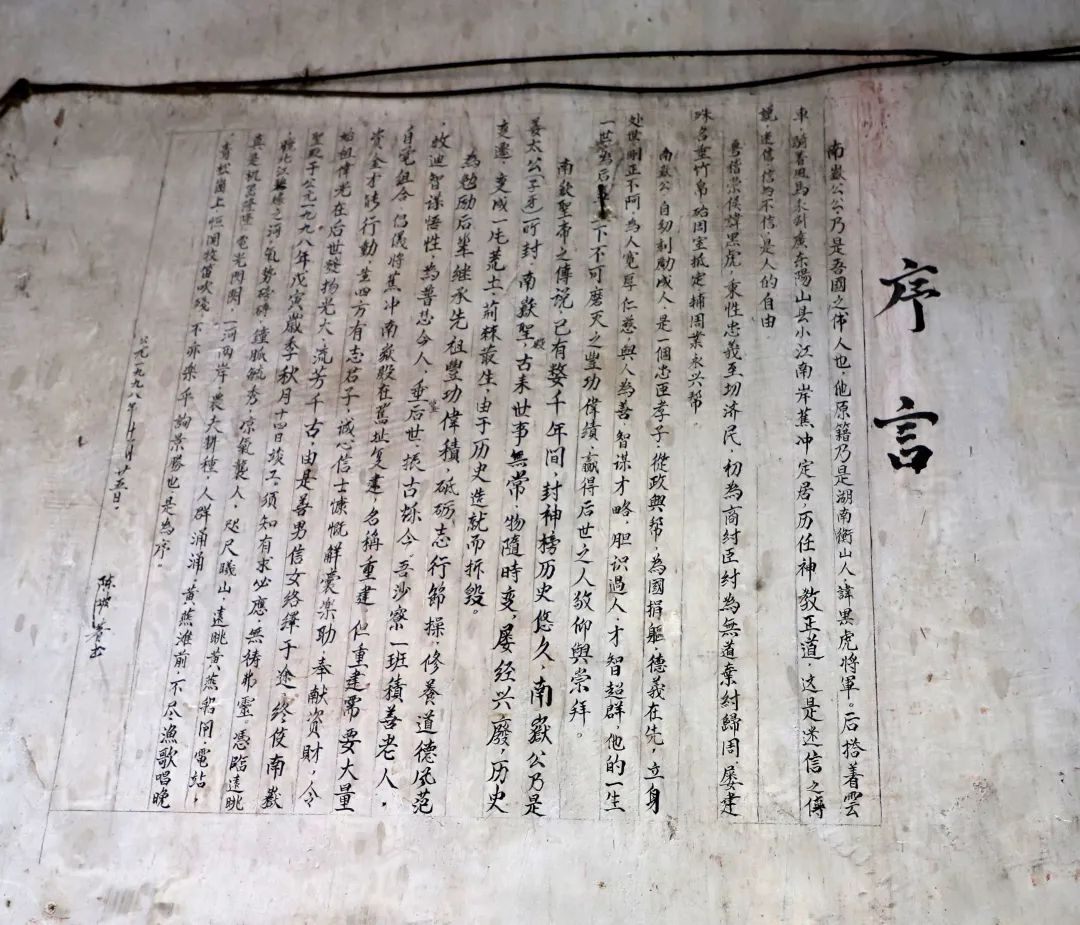 序言
南嶽公公乃是吾國之伟人也，他原籍乃是湖南衡山人諱黑虎將軍。后搭着雲
車，騎着风馬来到廣东陽山县小江南岸蕉冲定居，历任神教正道，这是迷信之傳
説，迷信信与不信，是人的自由
勇信崇侯諱黑虎，秉性忠義至切济民，初為商紂臣紂為無道棄紂歸周，屡建
殊名垂竹帛，始因室抵定捕周業永兴帮
南嶽公自幼刺勵成人，是一個忠臣孝子，從政與帮，為國捐軀，德義在先，立身
处世剛正不阿，為人寬厚仁慈，與人為善，智谋才略，胆识過人，才智超群，他的一生
一世為后下不可磨灭之豐功偉绩，赢得后世之人敬仰與崇拜。
南嶽聖帝之傳说，已有数千年间，封神榜历史悠久，南嶽公乃是
姜太公（子牙）所封，南嶽聖殿古来世事無常，物随時变，屡经兴廢，历史
变遷，变成一片荒土，荊棘叢生，由于历史造就而拆毁。
為勉励后辈继承先祖豐功偉積，砥砺志行節操，修養道德风范
，故迪智谋悟性，為普恐今人，垂后世，振古烁今，吾沙寮一班積善老人，
自宅組合，倡儀將蕉冲南嶽殿在舊址复建，名稱重建，但重建需要大量
資金才能行動，若四方有志君子，诚心信士慷慨解囊楽助，奉献資財，令
始祖偉光在后世發扬光大，流芳千古，由是善男信女络绎于途，终使南嶽
聖殿于公元一九九八年戊寅歲季秋月十四日竣工。须知有求必應，無祷弗靈。憑臨遠眺
，觀北江之河，氣势磅礴，鐘脈毓秀，凉氣襲人，咫尺曦山，遠眺黄燕船闸，電站，
真是机器隆隆，電光閃閃，一河两岸，農夫耕種，人群涌涌，黄燕滩前，不尽漁歌唱晚
，青松嶺上，恒闻牧笛吹殘，不亦楽乎，詢景勝也，是為序。
公元一九九八年十月廿五日。